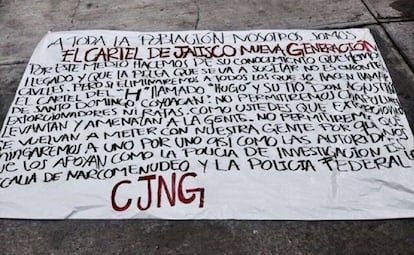 A TODA LA POBLACIÓN NOSOTROS SOMOS
EL CARTEL DE JALISCO NUEVA GENERACIÓN
POR ESTE MEDIO HACEMOS DE SU CONOCIMIENTO QUE HEMOS
LLEGADO Y QUE LA PELEA QUE SE VA A SUCITAR NO ES CONTRA
CIVILES. PERO SI ELIMINAREMOS A TODOS LOS QUE SE HACEN LLAMAR
EL CARTEL DE "H" LLAMADO "HUGO" Y SU TIO "DON AGUSTIN
DE SANTO DOMINGO COYOACAN". NO PERMITIREMOS
EXTORCIONADORES NI RATAS COMO USTEDES QUE EXTORCIONAN
LEVANTAN Y AMENAZAN A LA GENTE. NO PERMITIREMOS QUE
SE VUELVAN A METER CON NUESTRA GENTE POR QUE
A UNO POR UNO ASI COMO LAS AUTORIDADES
QUE LOS APOYAN COMO LA POLICIA DE INVESTIGACION
DE NARCOMENUDEO Y LA POLICIA FEDERAL
CJNG